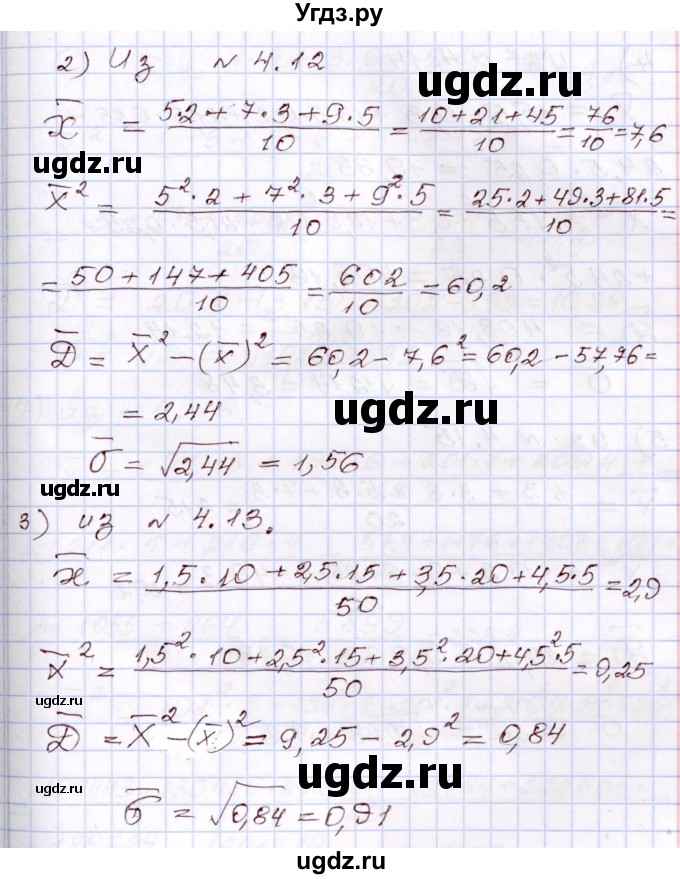 Угдз.ру
2) Из № 4.12
ugdz.ru
x̄ = (5·2+7·3+9·5)/10 = (10+21+45)/10 = 76/10 = 7,6
ugdz.ru
x̄² = (5²·2+7²·3+9²·5)/10 = (25·2+49·3+81·5)/10 =
= (50+147+405)/10 = 602/10 = 60,2
ugdz.ru
Д̄ = x̄² - (x̄)² = 60,2 - 7,6² = 60,2 - 57,76 =
= 2,44
ugdz.ru
σ̄ = √2,44 = 1,56
ugdz.ru
3) из № 4.13.
ugdz.ru
x̄ = (1,5·10+2,5·15+3,5·20+4,5·5)/50 = 2,9
x̄² = (1,5²·10+2,5²·15+3,5²·20+4,5²·5)/50 = 9,25
ugdz.ru
Д̄ = x̄² - (x̄)² = 9,25 - 2,9² = 0,84
ugdz.ru
ugdz.ru
σ̄ = √0,84 = 0,91
ugdz.ru
ugdz.ru